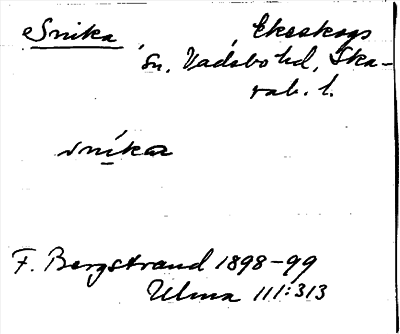 Snika, Ekeskogs
sn. Vadsbo hd, Ska-
rab. l.
snika
F. Bergstrand 1898-99
Ulma 111:313